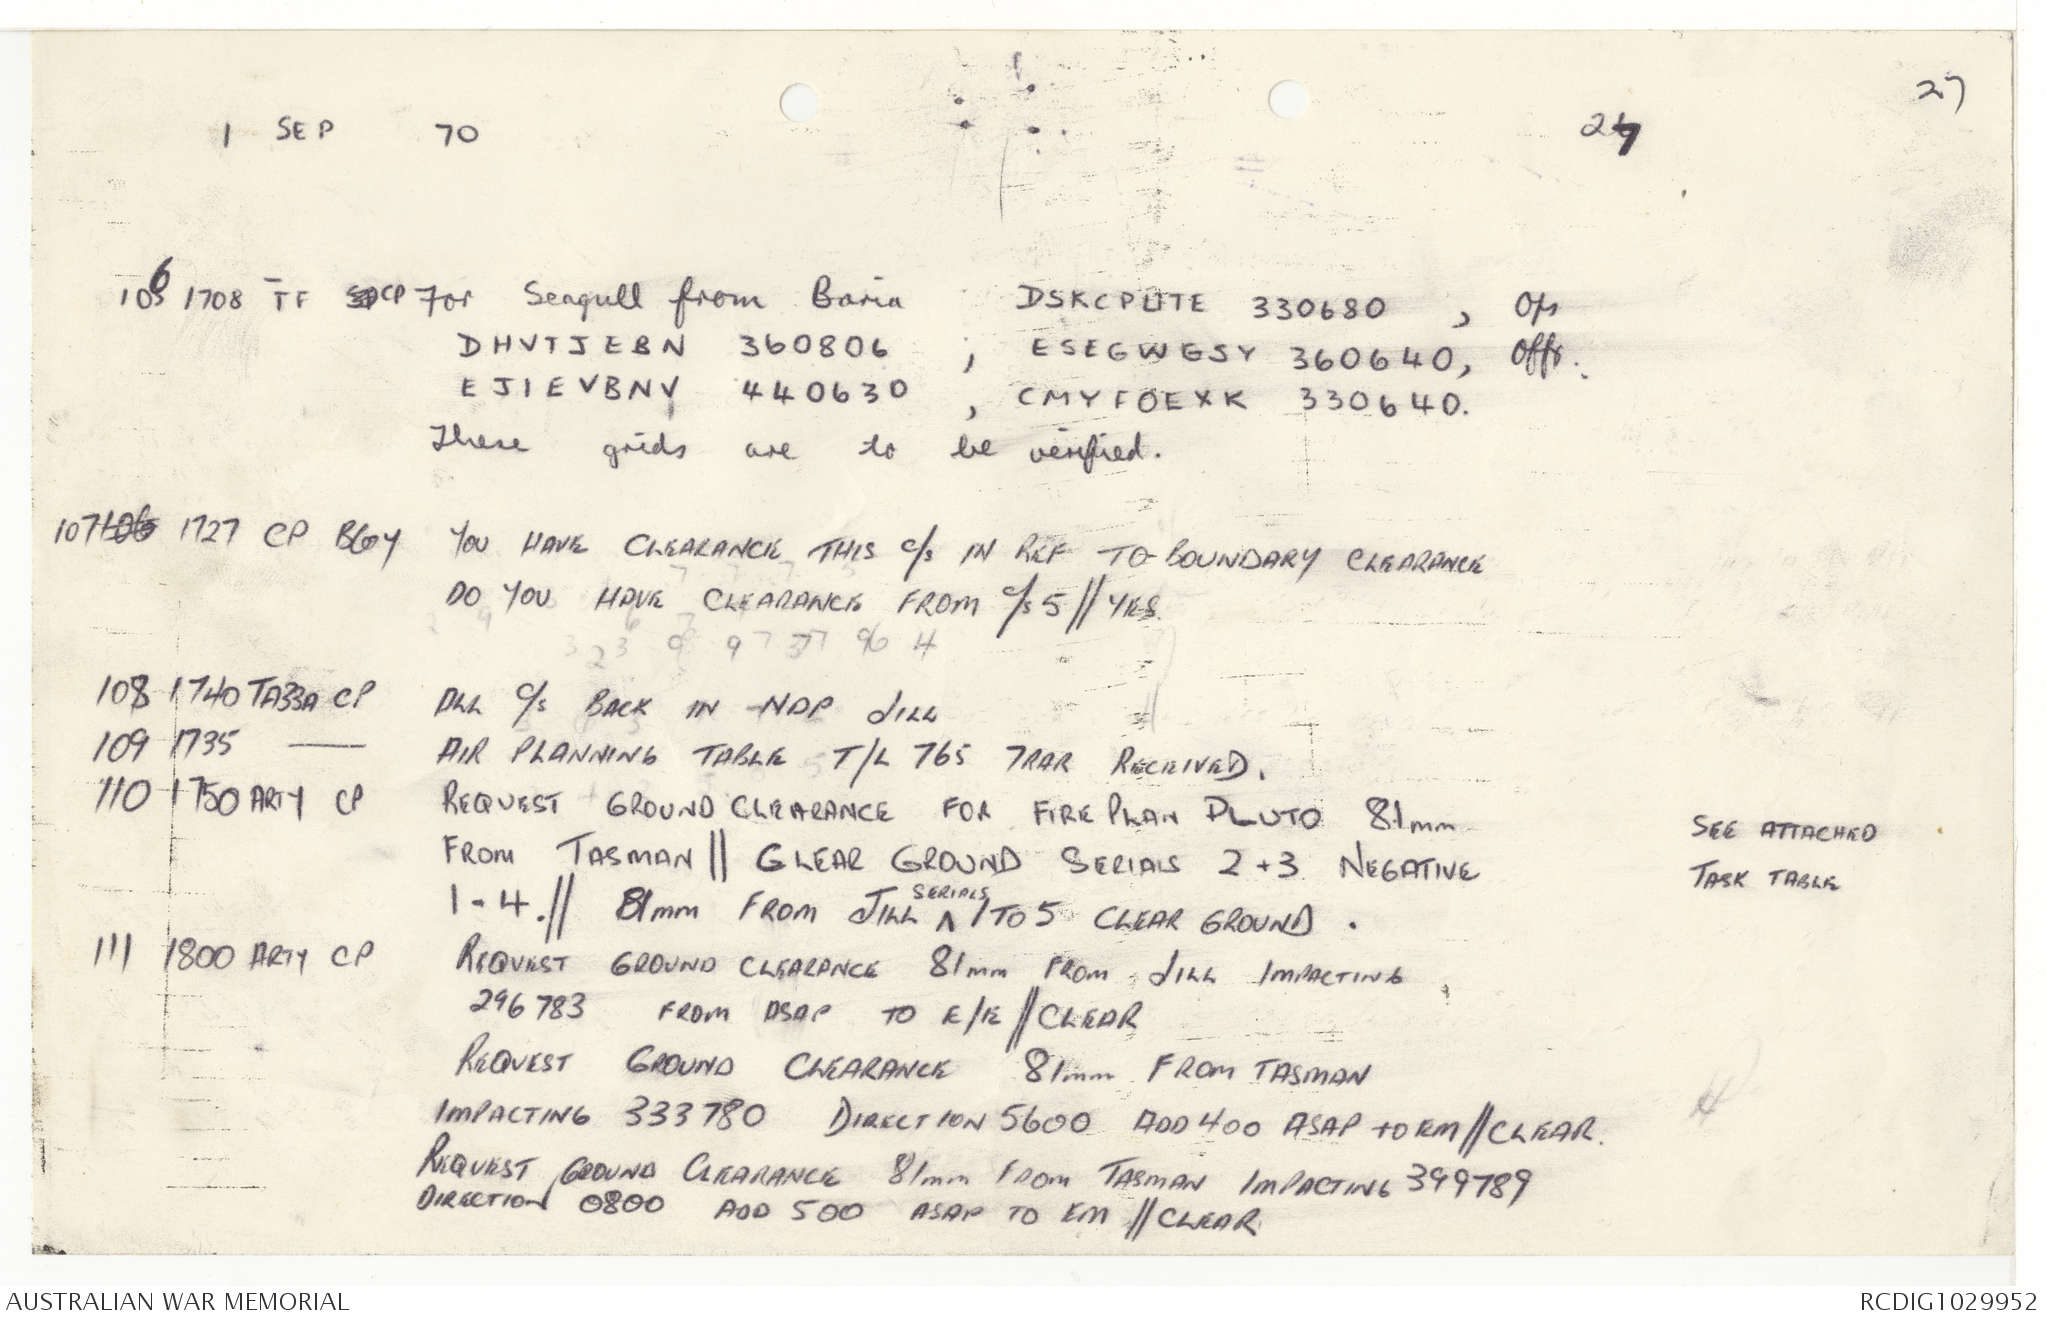 27
1 SEP 70 27
106 1708 TF CP For Seagull from Baria DSKCPUTE 330680 , Ops
DHVTJEBN 360806 ; ESEGWGSY 360640, Offr.
EJIEVBNV 440630 , CMYFOEXK 330640.
These grids are to be verified.
107 106 1727 CP BGOY YOU HAVE CLEARANCE THIS C/S IN REF TO BOUNDARY CLEARANCE
DO YOU HAVE CLEARANCE FROM C/S 5 // YES.
108 1740 TA33A CP ALL C/S BACK IN NDP JILL
109 1735 — AIR PLANNING TABLE T/L 765 7RAR RECEIVED.
110 1750 ARTY CP REQUEST GROUND CLEARANCE FOR FIRE PLAN PLUTO 81mm SEE ATTACHED
FROM TASMAN // CLEAR GROUND SERIALS 2+3 NEGATIVE TASK TABLE
1-4.// 81mm FROM JILL SERIALS 1 TO 5 CLEAR GROUND.
111 1800 ARTY CP REQUEST GROUND CLEARANCE 81mm FROM JILL IMPACTING
296783 FROM ASAP TO E/E // CLEAR
REQUEST GROUND CLEARANCE 81mm FROM TASMAN
IMPACTING 333780 DIRECTION 5600 ADD 400 ASAP TO EM // CLEAR.
REQUEST GROUND CLEARANCE 81mm FROM TASMAN IMPACTING 399789
DIRECTION 0800 ADD 500 ASAP TO EM // CLEAR
AUSTRALIAN WAR MEMORIAL RCDIG1029952